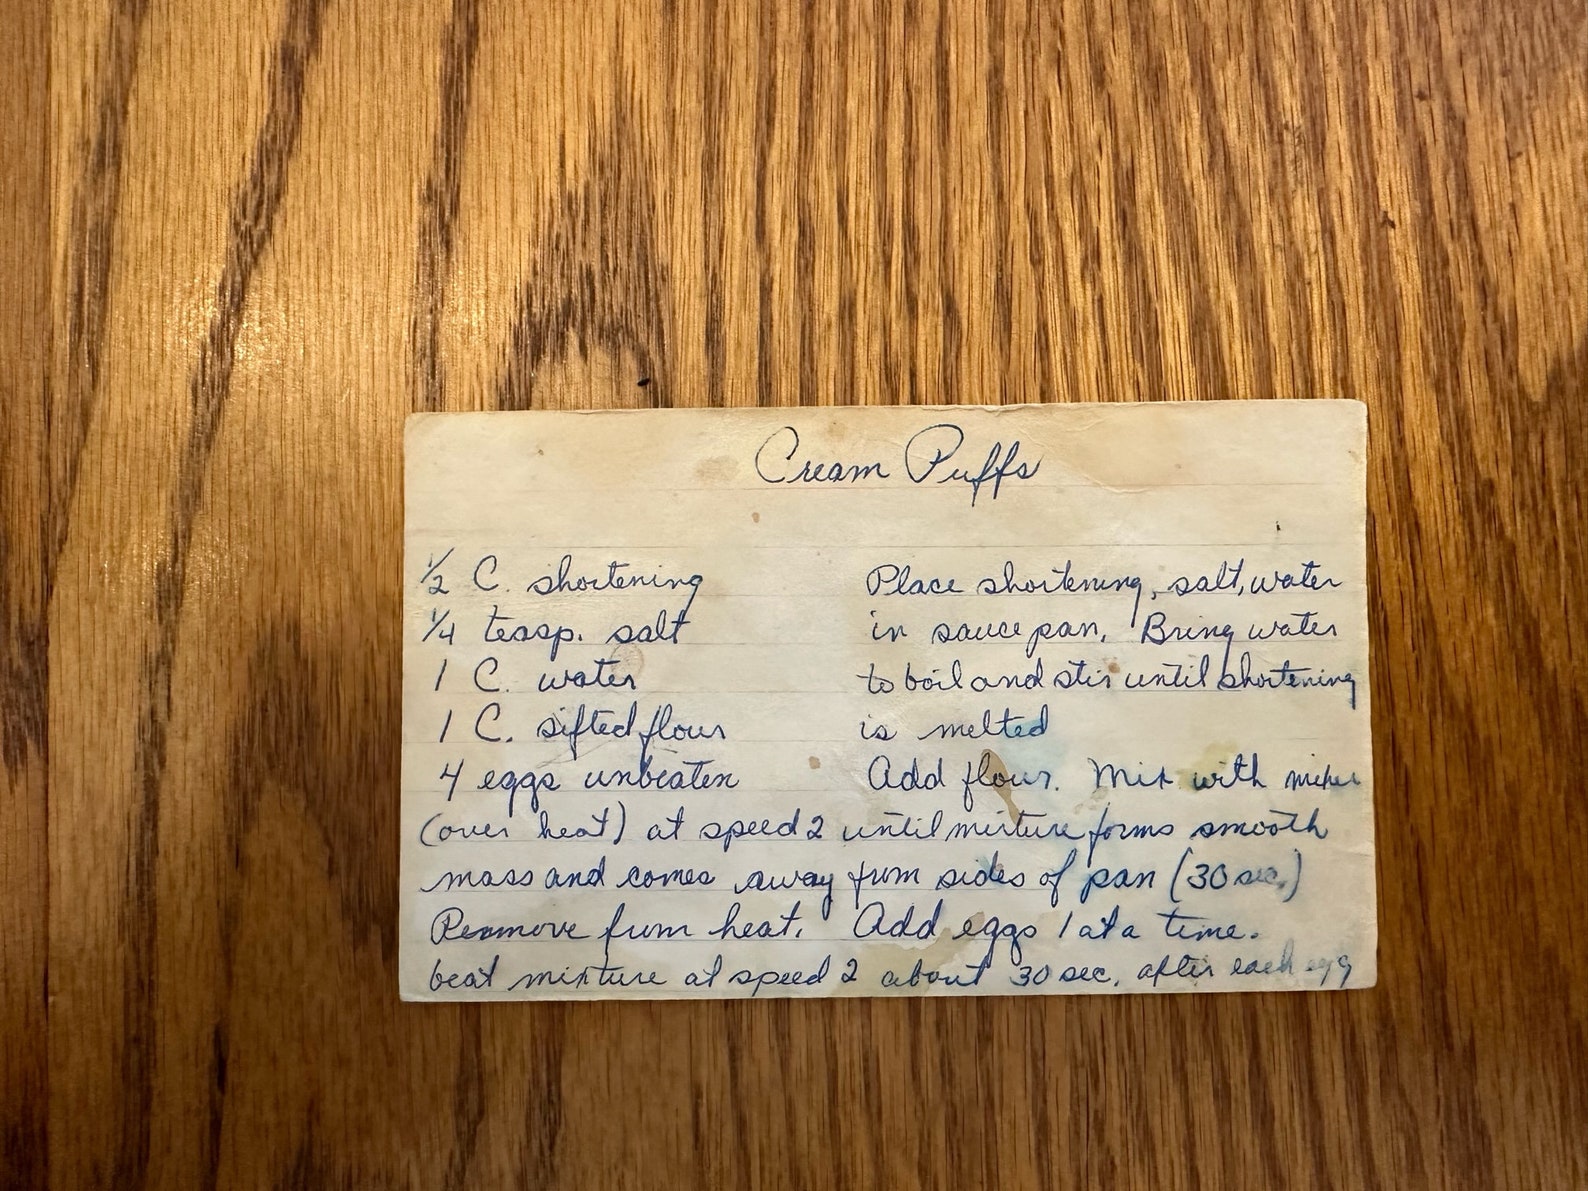 Cream Puffs
1/2 C. shortening
1/4 teasp. salt
1 C. water
1 C. sifted flour
4 eggs unbeaten
Place shortening, salt, water
in sauce pan. Bring water
to boil and stir until shortening
is melted
Add flour. Mix with mixer
(over heat) at speed 2 until mixture forms smooth
mass and comes away from sides of pan (30 sec.)
Remove from heat. Add eggs 1 at a time.
beat mixture at speed 2 about 30 sec. after each egg